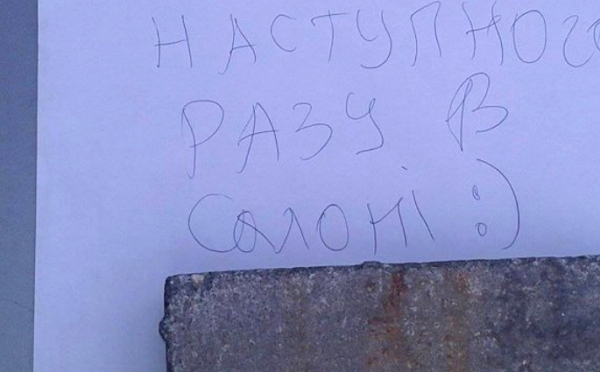 НАСТУПНОГО
РАЗУ В
САЛОНІ :)